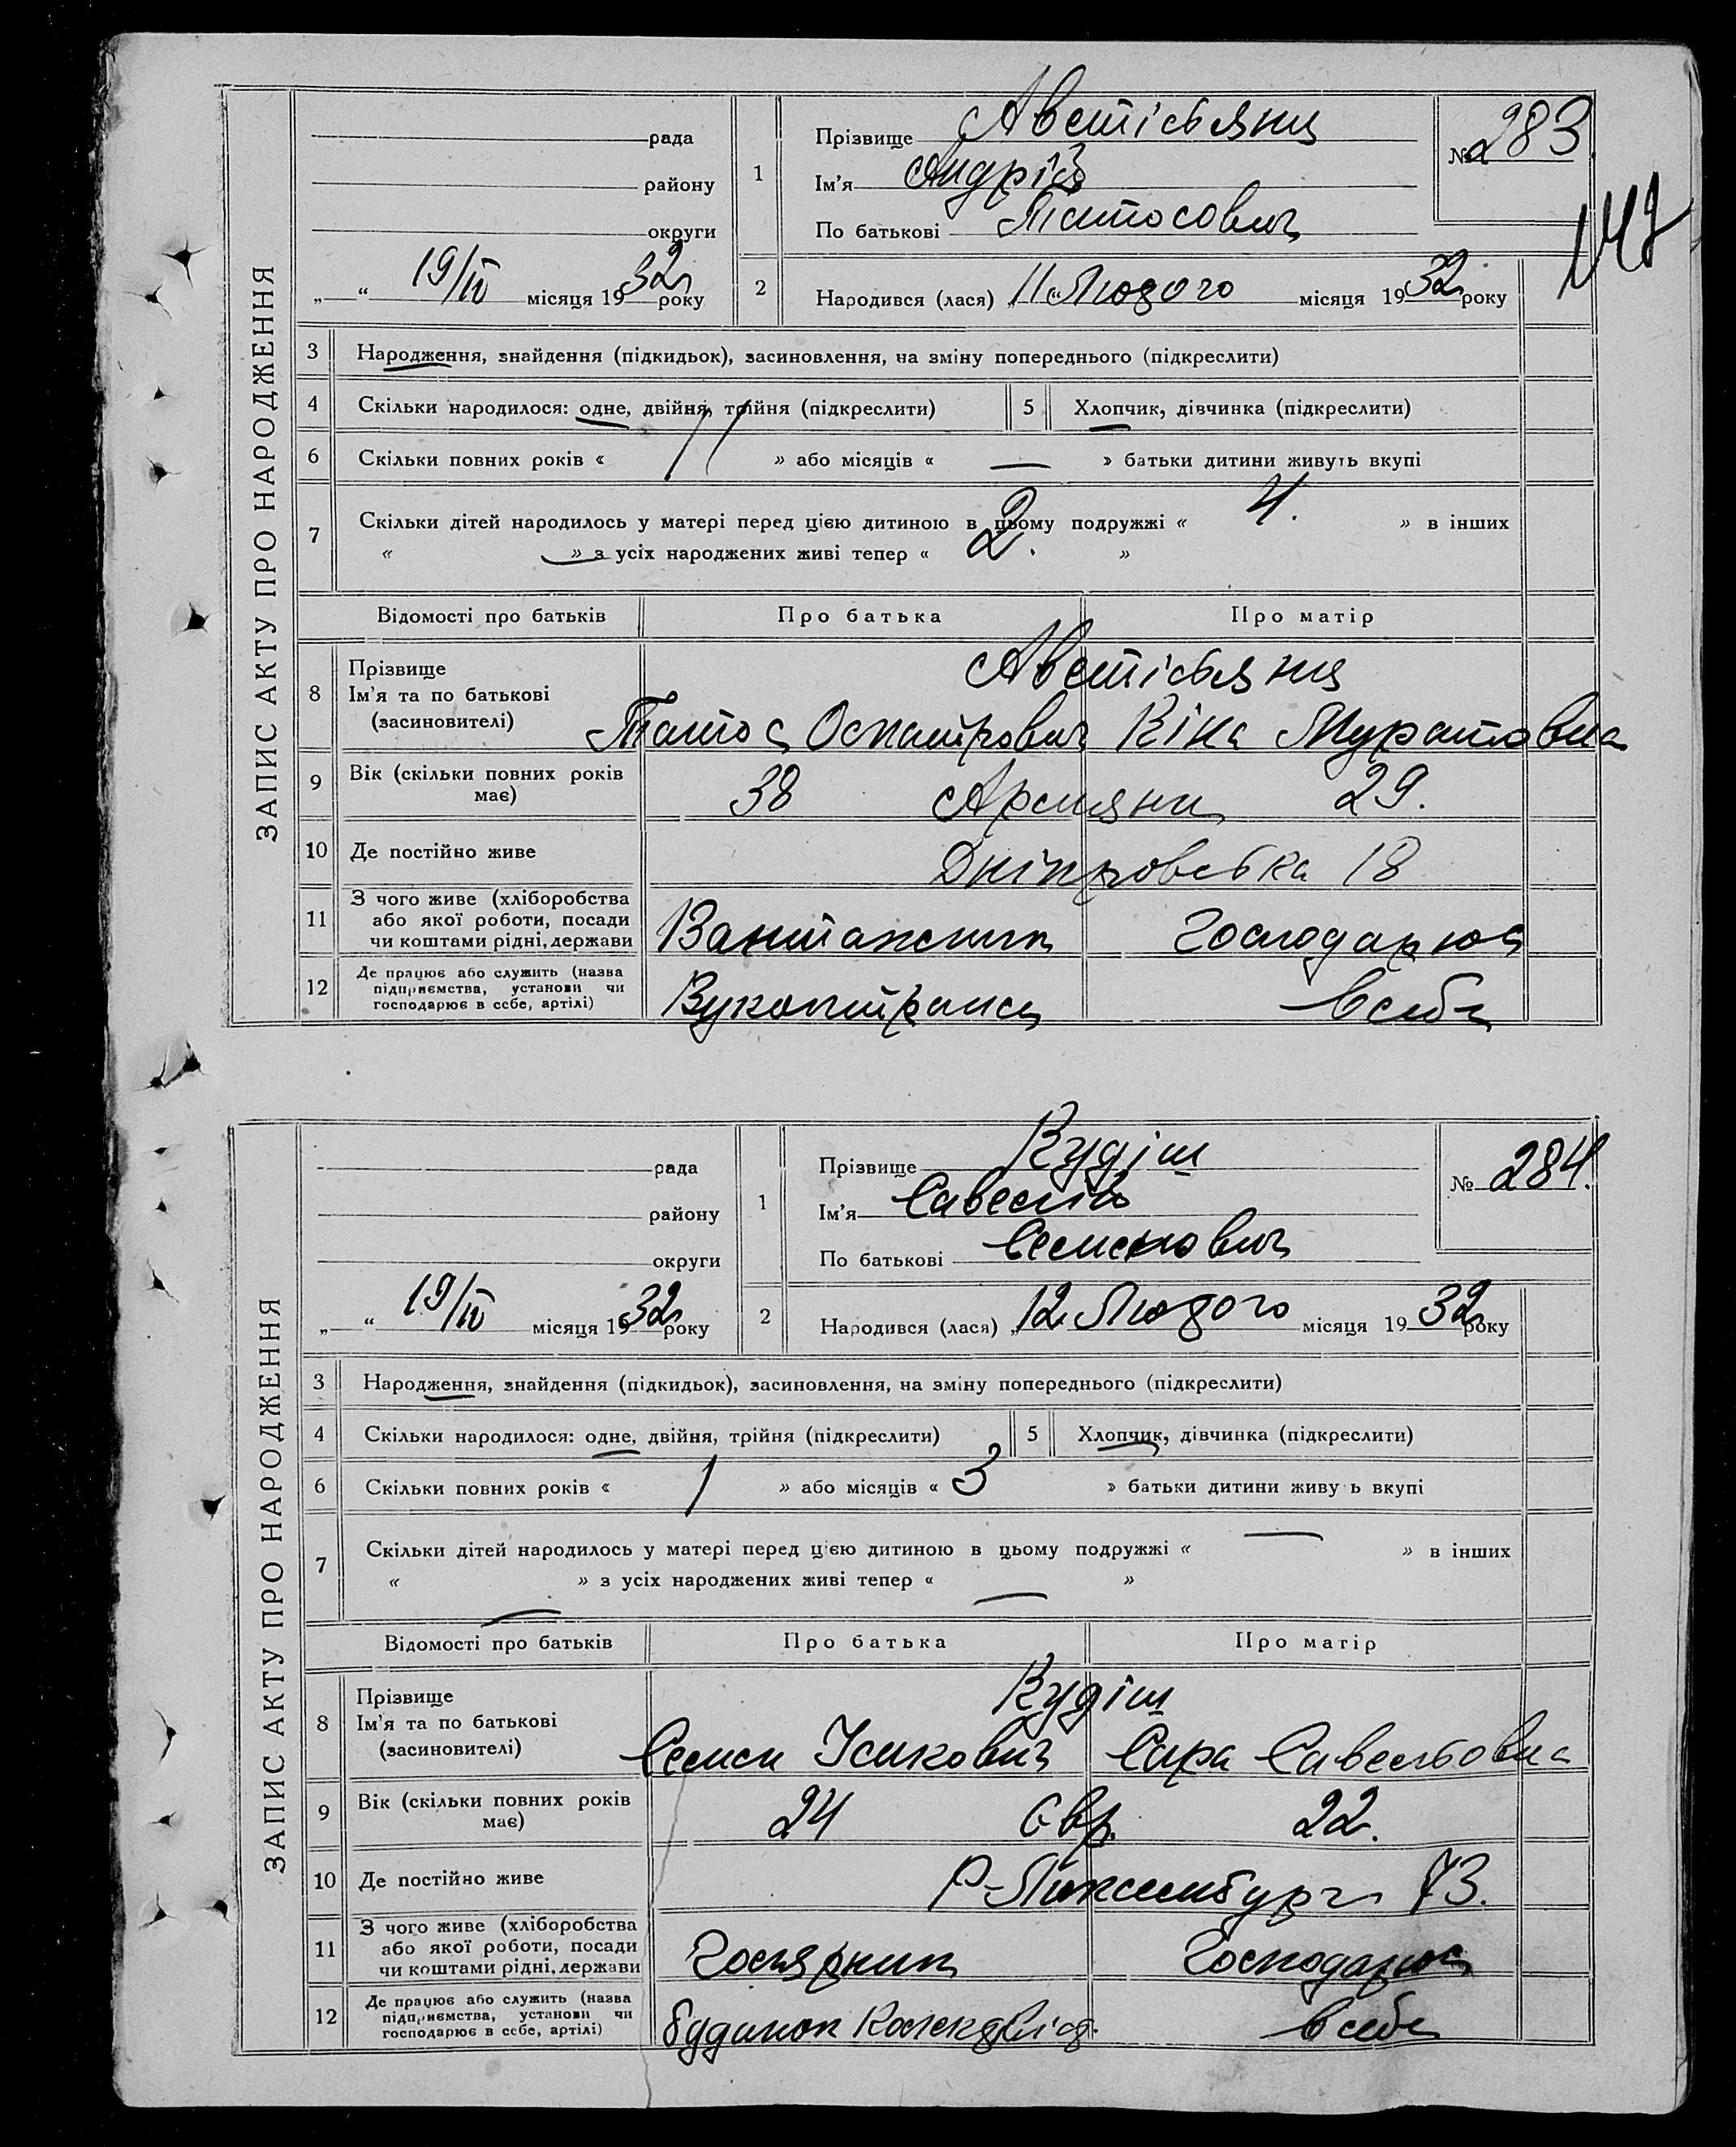 ЗАПИС АКТУ ПРО НАРОДЖЕННЯ
рада
району
округи
„ “ 19/IV місяця 1932 року
1
Прізвище Аветісьянц
Ім’я Андрій
По батькові Татосович
№ 283
147
2 Народився (лася) „11“ Лютого місяця 1932 року
3 Народження, знайдення (підкидьок), засиновлення, на зміну попереднього (підкреслити)
4 Скільки народилося: одне, двійня, трійня (підкреслити) 5 Хлопчик, дівчинка (підкреслити)
6 Скільки повних років « 11 » або місяців « — » батьки дитини живуть вкупі
7 Скільки дітей народилось у матері перед цією дитиною в цьому подружжі « 4. » в інших
« — » з усіх народжених живі тепер « 2. »
Відомості про батьків Про батька Про матір
8 Прізвище Аветісьянц
Ім’я та по батькові
(засиновителі) Татос Муратовна
9 Вік (скільки повних років має) 38 Армяни 29.
10 Де постійно живе Дніпровська 18
11 З чого живе (хліборобства
або якої роботи, посади
чи коштами рідні, держави Вантажник Господарює
12 Де працює або служить (назва
підприємства, установи чи
господарює в себе, артілі) Вукоптранс в себе
ЗАПИС АКТУ ПРО НАРОДЖЕННЯ
рада
району
округи
„ “ 19/IV місяця 1932 року
1
Прізвище Кудіш
Ім’я Савелій
По батькові Семенович
№ 284.
2 Народився (лася) „12 Лютого місяця 1932 року
3 Народження, знайдення (підкидьок), засиновлення, на зміну попереднього (підкреслити)
4 Скільки народилося: одне, двійня, трійня (підкреслити) 5 Хлопчик, дівчинка (підкреслити)
6 Скільки повних років « 1 » або місяців « 3 » батьки дитини живу ь вкупі
7 Скільки дітей народилось у матері перед цією дитиною в цьому подружжі « — » в інших
« — » з усіх народжених живі тепер « — »
Відомості про батьків Про батька Про матір
8 Прізвище Кудіш
Ім’я та по батькові
(засиновителі) Семен Ісакович Сара Савельовна
9 Вік (скільки повних років має) 24 Євр. 22.
10 Де постійно живе Р-Люксембург 73.
11 З чого живе (хліборобства
або якої роботи, посади
чи коштами рідні, держави Столярник Господарює
12 Де працює або служить (назва
підприємства, установи чи
господарює в себе, артілі) будинок в себе